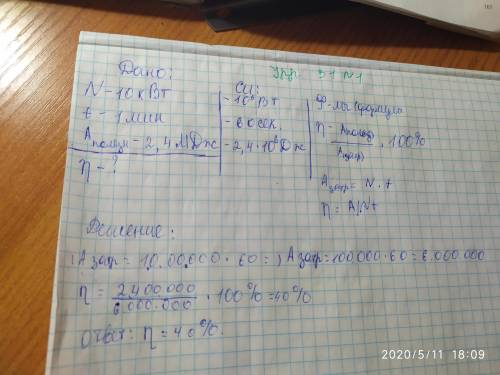 Дано:
N - 10 кВт
t - 1 мин
Aполезн - 2,4 МДж
η - ?
Си:
- 60 сек.
- 2,4·10⁶ Дж
Ф-лы (формулы
η - Aполезн / Aзатр · 100%
Aзатр = N · t
η = A/Nt
Решение:
Aзатр = 10.00.000 · 60 = Aзатр = 100000·60 = 6.000000
η = 2,400 000 / 6.000.000 · 100% = 40%
Ответ: η = 40%.
2020/5/11 18:09